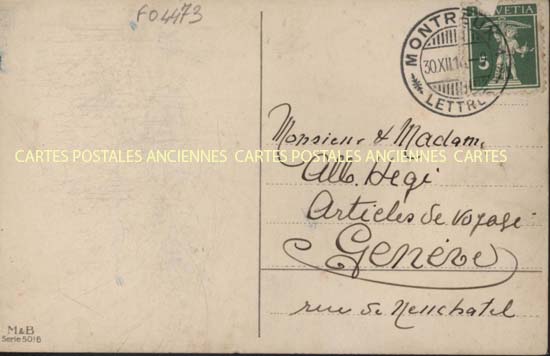 F04473
HELVETIA
5
MONTREUX
30.XII.14
LETTRES
Monsieur & Madame
CARTES POSTALES ANCIENNES CARTES POSTALES ANCIENNES CARTES
Alb. Hegi
Articles de voyage
Genève
rue de Neuchatel
M&B
Serie 5016